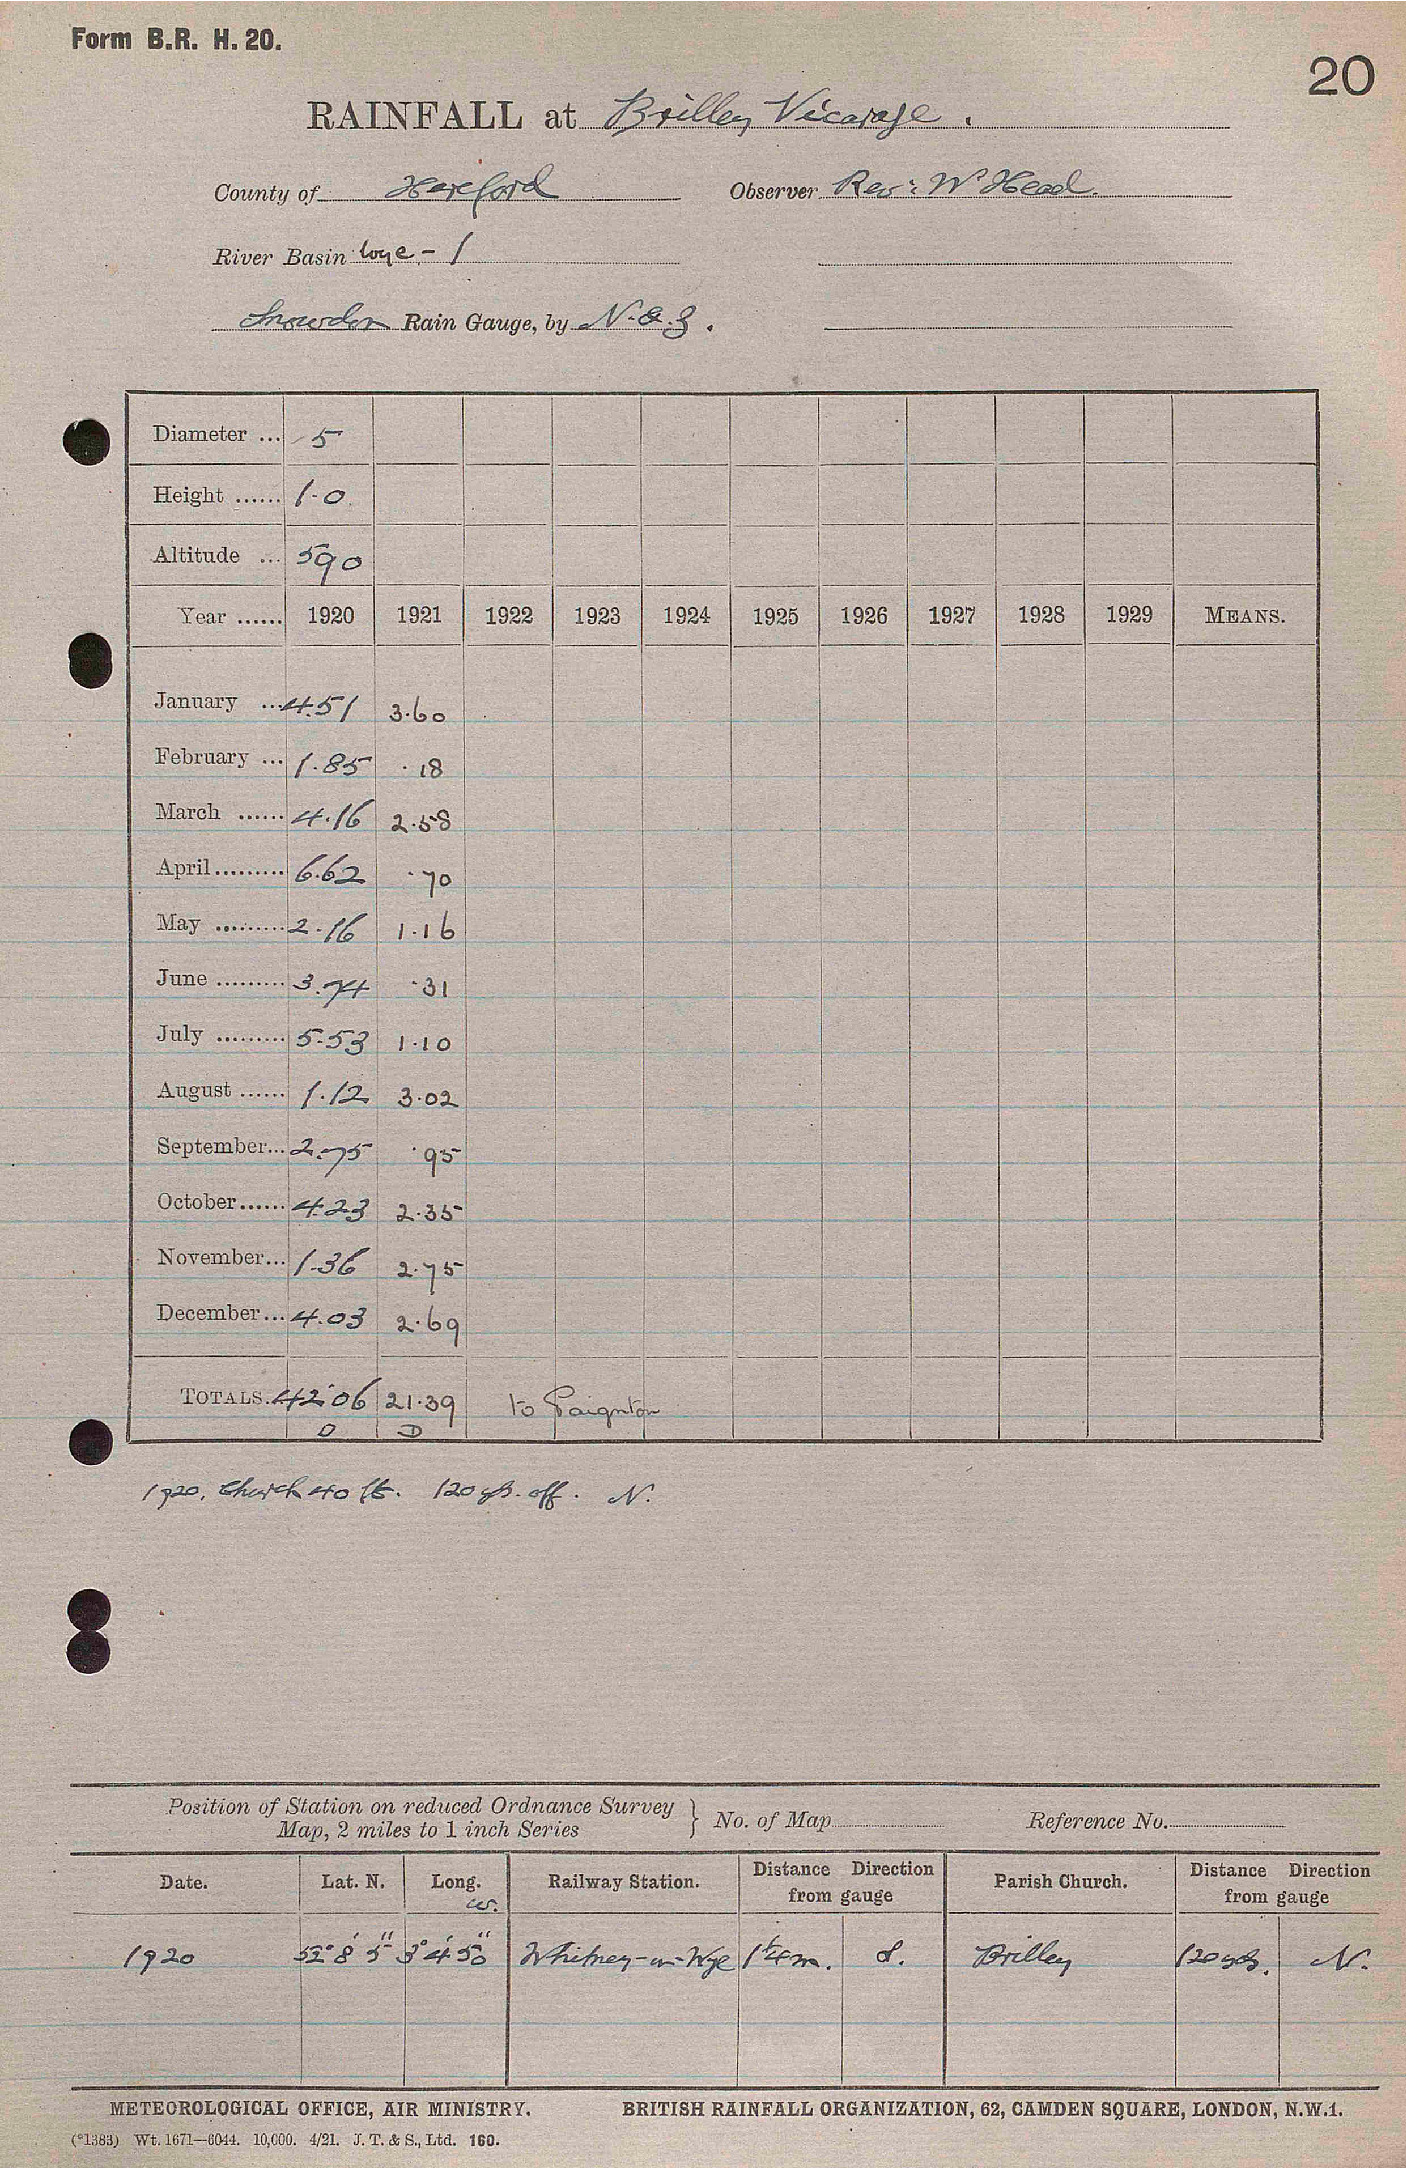 Form B.R. H. 20.
20
RAINFALL at Brilley Vicarage.
County of Hereford Observer Rev: W Head
River Basin Wye - 1
Snowdon Rain Gauge, by N. & Z.
Diameter ... 5
Height ...... 1-0
Altitude ... 590
Year ...... 1920 1921 1922 1923 1924 1925 1926 1927 1928 1929 MEANS.
January ... 4.51 3.60
February ... 1.85 .18
March ...... 4.16 2.58
April ......... 6.62 .70
May ......... 2.16 1.16
June ......... 3.74 .31
July ......... 5.53 1.10
August ...... 1.12 3.02
September... 2.75 .95
October ...... 4.23 2.35
November... 1.36 2.75
December... 4.03 2.69
TOTALS. 42.06 21.39 to Paignton
D D
1920. Church 40 ft. 120 yds. off. N.
Position of Station on reduced Ordnance Survey
Map, 2 miles to 1 inch Series } No. of Map Reference No.
Date. Lat. N. Long. W. Railway Station. Distance Direction from gauge Parish Church. Distance Direction from gauge
1920 52° 8' 5" 3° 4' 50" Whitney-on-Wye 1¼ m. S. Brilley 120 yds. N.
METEOROLOGICAL OFFICE, AIR MINISTRY. BRITISH RAINFALL ORGANIZATION, 62, CAMDEN SQUARE, LONDON, N.W.1.
(*1383) Wt. 1671—6044. 10,000. 4/21. J. T. & S., Ltd. 160.